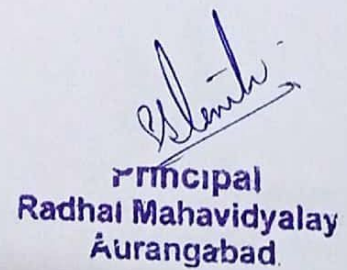 Principal
Radhai Mahavidyalay
Aurangabad.